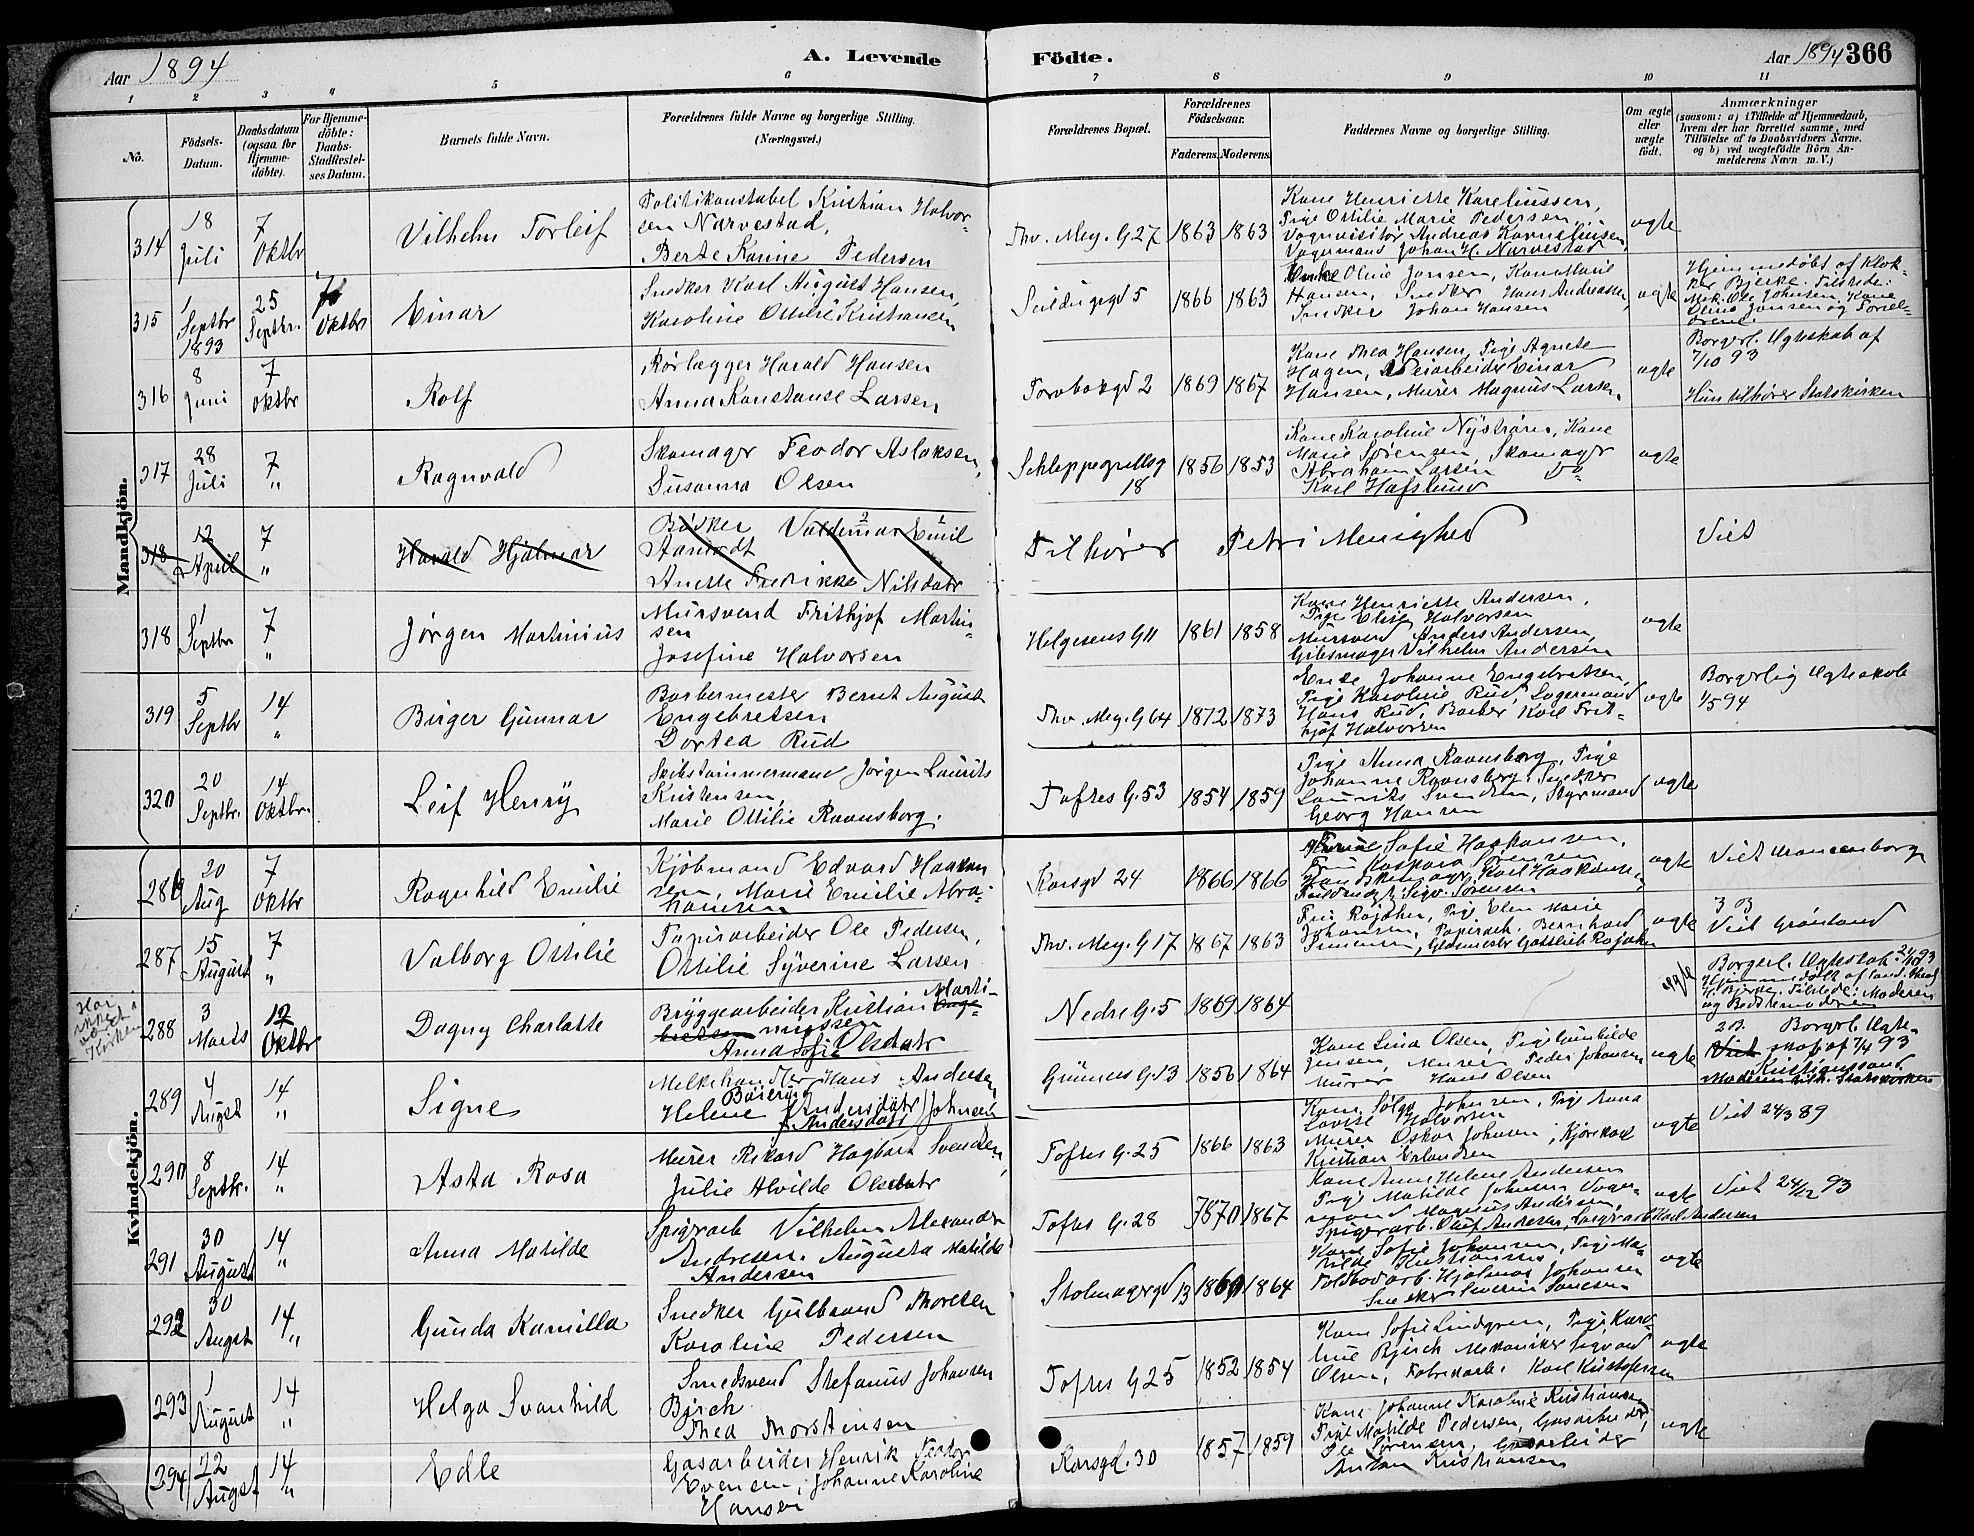 Aar 1894
A. Levende Födte.
Aar 1894 366
1 2 3 4 5 6 7 8 9 10 11
No.
Födsels-Datum.
Daabsdatum (ogsaa for Hjemme-döbte).
For Hjemme-döbte: Daabs-Stadfæstel-ses Datum.
Barnets fulde Navn.
Forældrenes fulde Navne og borgerlige Stilling. (Næringsvei.)
Forældrenes Bopæl.
Forældrenes Födselsaar.
Faderens. Moderens.
Faddernes Navne og borgerlige Stilling.
Om ægte eller uægte födt.
Anmærkninger
(saasom: a) i Tilfælde af Hjemmedaab, hvem der har forrettet samme, med Tilföielse af to Daabsvidners Navne, og b) ved uægtefödte Börn An-melderens Navn m. V.)
Mandkjön.
314 18 Juli 7 Oktbr Vilhelm Torleif
Politikonstabel Kristian Halvor-
sen Narvestad,
Berte Karine Pedersen
Thv. Mey. G 27 1863 1863
Kone Henriette Kareliussen,
Pige Ottilie Marie Pedersen,
Vognvisitör Andreas Korneliussen,
Vognmand Johan H. Narvestad
ægte
315 1 Septbr 1893 25 Septbr. 7 Oktbr Einar
Snedker Karl August Hansen,
Karoline Ottilie Kristiansen
Seildugsgd 5 1866 1863
Enke Oline Jansen, Kone Marie
Hansen, Snedker Hans Andreasen,
Snedker Johan Hansen
ægte
Hjemmedöbt af Klok-
ker Bjerke. Tilstede:
Mek. Ole Johnsen, Kone
Oline Jonsen og Foræl-
drene.
316 8 Juni 7 Oktbr Rolf
Rörlægger Harald Hansen
Anna Konstanse Larsen
Torvbakgd 2 1869 1867
Kone Thea Hansen, Pige Agnete
Hagen, Veiarbeider Einar
Hansen, Murer Magnus Larsen,
ægte
Borgerl. Ægteskab af
7/10 93
Hun tilhörer Statskirken
317 28 Juli 7 " Ragnvald
Skomager Teodor Aslaksen,
Susanna Olsen
Schleppegrellsg 18 1856 1853
Kone Karoline Nyström, Kone
Marie Sörensen, Skomager
Abraham Larsen do
Karl Hafslund
ægte
318 12 April 7 " Harald Hjalmar
Bödker Valdemar Emil
Aamodt
Anette Fredrikke Nilsdatr
Tilhörer Petri Menighed
Viet
318 1 Septbr 7 " Jörgen Martinius
Mursvend Frithjof Martin-
sen
Josefine Halvorsen
Helgesens G 11 1861 1858
Kone Henriette Andersen,
Pige Elise Halvorsen
Mursvend Anders Andersen,
Gibsmager Vilhelm Andersen
ægte
319 5 Septbr 14 " Birger Gunnar
Barbermester Bernt August
Engebretsen
Dortea Rud
Thv. Mey. G 64 1872 1873
Enke Johanne Engebretsen,
Pige Karoline Rud, Lagermand
Hans Rud, Barber Karl Frit-
hjof Halvorsen
ægte
Borgerlig Ægteskab
1/5 94
320 20 Septbr. 14 Oktbr. Leif Henry
Skibstømmermand Jörgen Laurits
Kristensen,
Marie Ottilie Ravnsborg.
Toftes G. 53 1854 1859
Pige Anna Ravnsborg, Pige
Johanne Ravnsborg, Snedker
Laurits Svendsen, Styrmand
Georg Hansen
ægte
Kvindekjön.
286 20 Aug 7 Oktbr Ragnhild Emilie
Kjöbmand Edvard Haakon
sen, Marie Emilie Abra-
hamsen
Korsgd 24 1866 1866
Sofie Haakonsen,
Handskemager Karl Haakonse,
Sigv. Sörensen
ægte
Viet
287 15 August 7 " Valborg Ottilie
Papirarbeider Ole Pedersen,
Ottilie Syverine Larsen
Thv. Mey. G 17 1867 1863
Pige Elen Marie
Johansen, Papirarb. Bernhard
Simensen, Glasmester Gottlieb
ægte
Viet Grönland
288 3 Marts 12 Oktbr Dagny Charlotte
Bryggearbeider Kristian Marti-
niussen
Anna Sofie Olsdatr
Nedre G. 5 1869 1864
ægte
Borgerl. Ægteskab 24/10 93
Hjemmedöbt af Cand. theol
H. Bjerke. Tilstede: Moderen
og Bedstemoderen
289 4 Augst 14 " Signe
Melkehandler Hans Andersen
Böiering
Helene Andersdatr Johnsen
Andersdatr
Grünners G. 13 1856 1864
Kone Lina Olsen, Pige Gunhilde
Jensen, Murer Peder Johansen
Murer Hans Olsen
ægte
Borgerl. Ægte-
Viet skab af 7/4 93
Kristianssand.
Moderen tilh. Statskirken
290 8 Septbr. 14 " Asta Rosa
Murer Rikard Hagbart Svendsen,
Julie Alvilde Olsdatr
Toftes G. 25 1866 1863
Kone Johnsen, Pige Anna
Lovise Halvorsen
Murer Oskar Johnsen, Kjörekarl
Kristian Erlandsen
ægte
Viet 24/3 89
291 30 August 14 " Anna Matilde
Spigrarb Vilhelm Alexander
Andresen. Augusta Matilde
Andersen
Toftes G. 28 1870 1867
Kone Anne Helene Andersen
Pige Matilde Johnsen Vogn-
mand Magnus Andersen,
Spigerarb. Oluf Andersen, Spigerarb Karl Andersen
ægte
Viet 24/12 93
292 30 Augst 14 " Gunda Kamilla
Snedker Gulbrand Thoresen
Karoline Pedersen
Stolmagergd 13 1860 1864
Kone Sofie Johansen, Pige Ma-
tilde Kristiansen
Toldbodarb. Hjalmar Johansen
Snedker Severin
ægte
293 1 August 14 " Helga Svanhild
Smedsvend Stefanus Johansen
Björch
Thea Thorstensen
Toftes G 25 1852 1854
Kone Sofie Lindgren, Pige Karo-
line Björch Mekaniker Sigvard
Olsen, Fabrikarb. Karl Kristofersen
ægte
294 22 Augst 14 " Edle
Gasarbeider Henrik Teodor
Evensen, Johanne Karoline
Hansen
Korsgd. 30 1857 1859
Kone Johanne Karoline Kristiansen
Pige Matilde Pedersen, Gasarbeider
Ole Sörensen, Gasarbeider
Anton Kristiansen
ægte